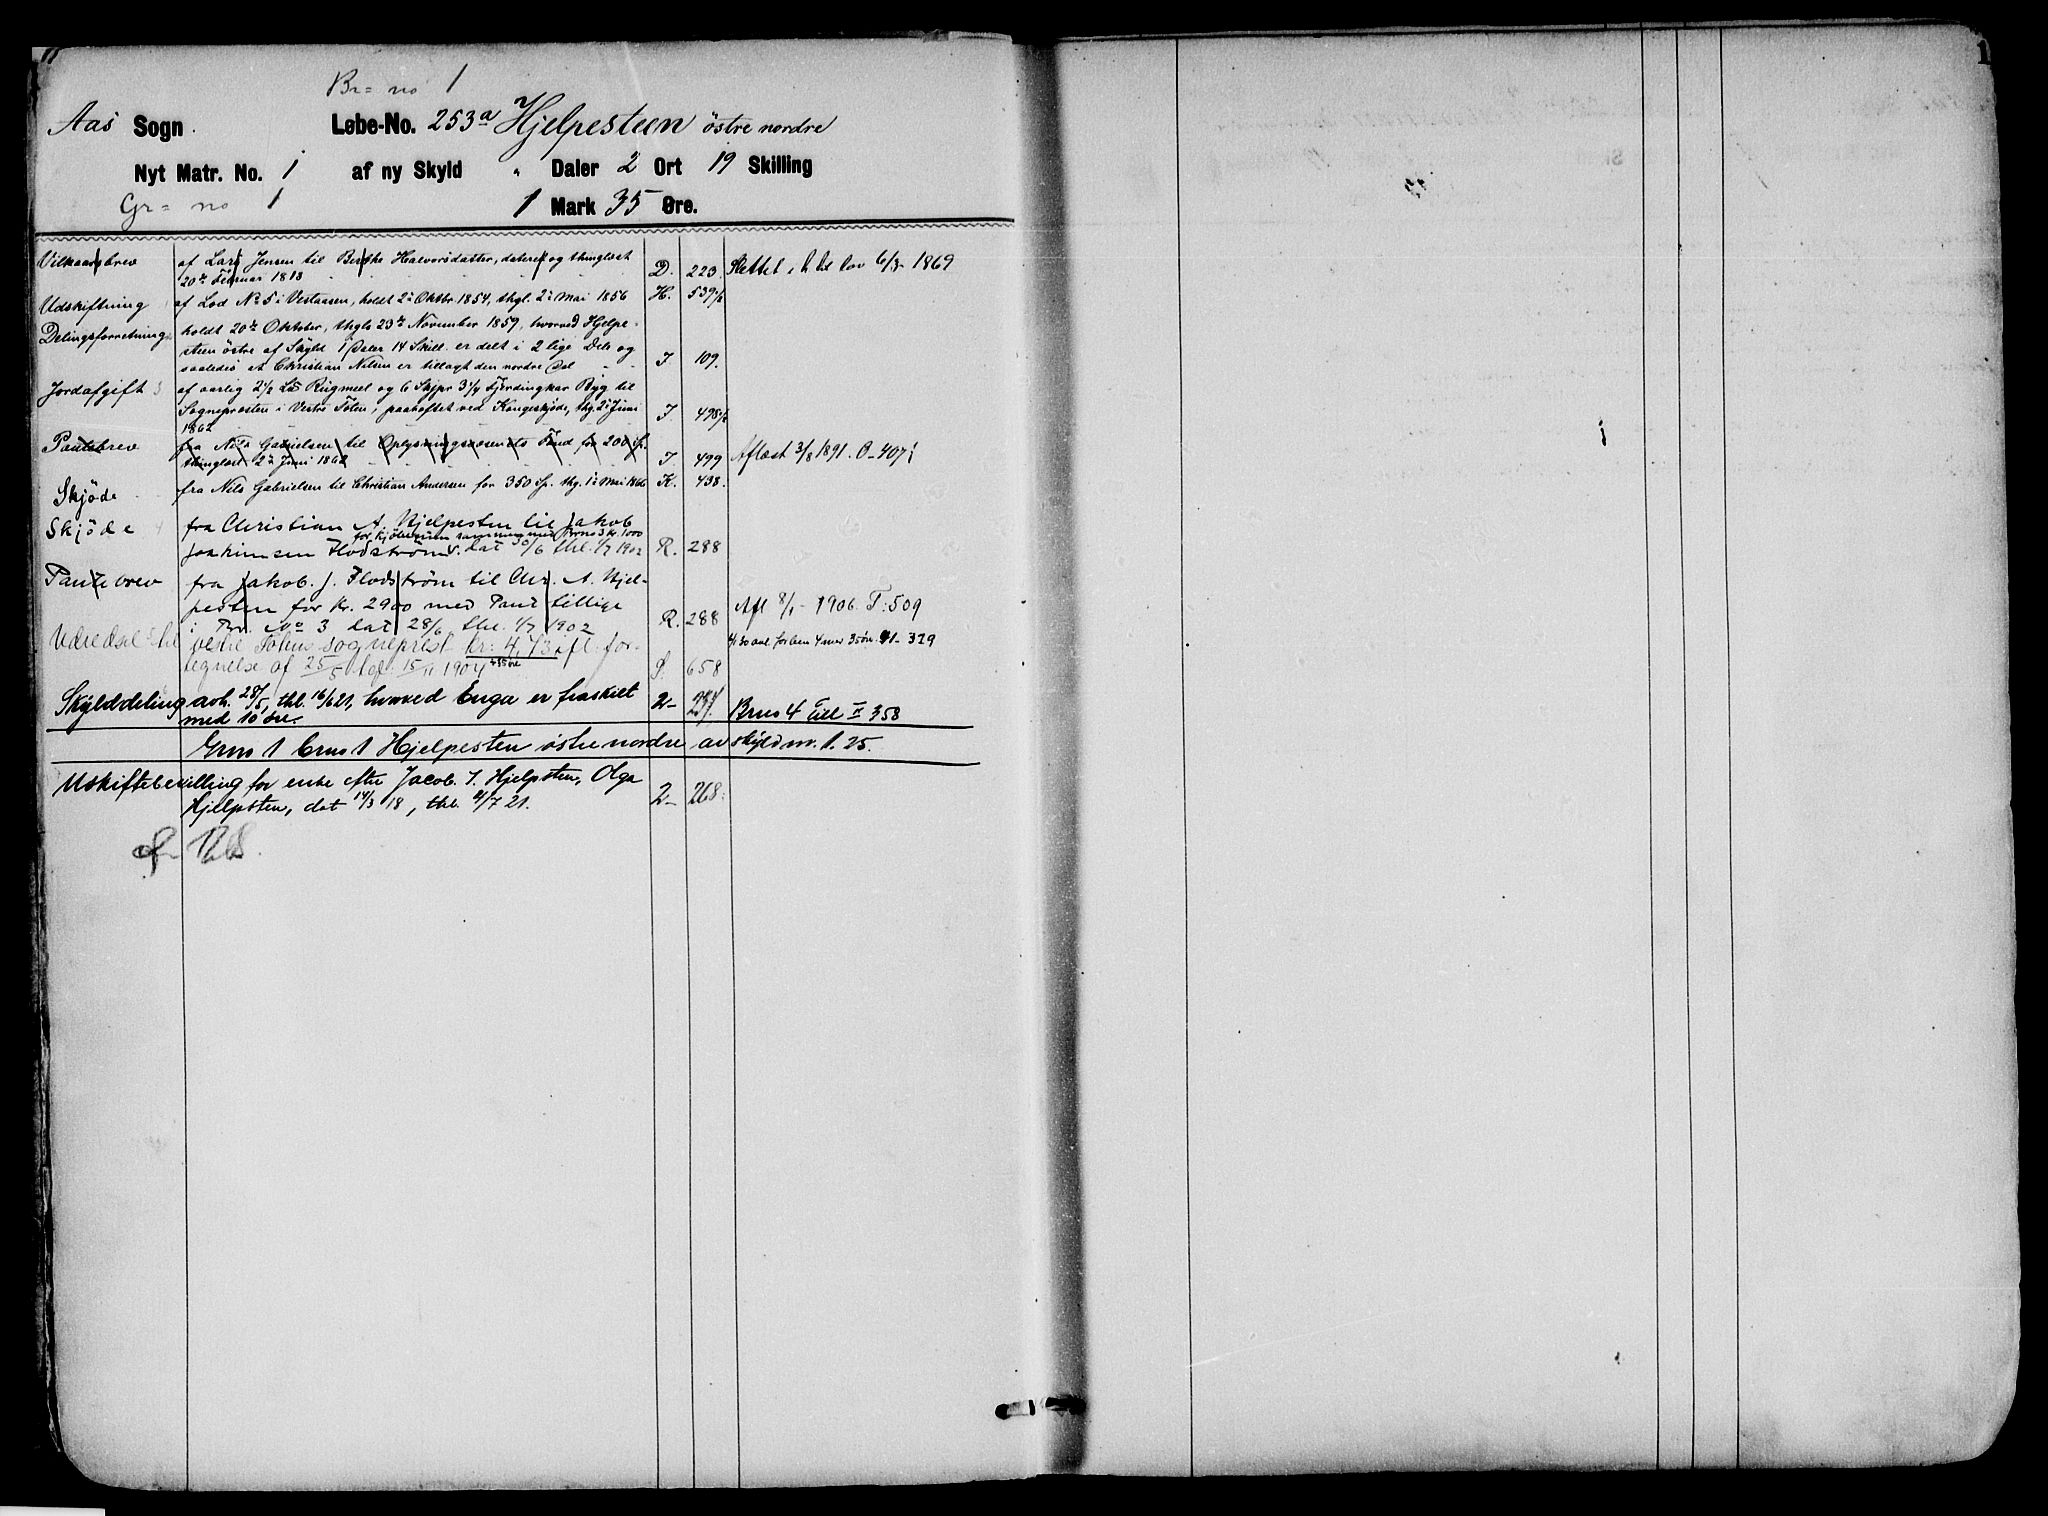 Br= no 1
Aas Sogn. Løbe-No. 253a Hjelpesteen östre nordre
Nyt Matr. No. 1 af ny Skyld " Daler 2 Ort 19 Skilling
Gr= no 1 1 Mark 35 Øre.
Vilkaarsbrev af Lars Jensen til Berthe Halvorsdatter, dateret og thinglæst
20de Februar 1813 D. 223. Slettet i h. til lov 6/3 - 1869
Udskiftning af Lod No 5 i Vestaasen, holdt 2 Oktbr 1854, thgl. 2 Mai 1856 H. 539 1/2
Delingsforretning holdt 20de Oktober, thgls 23de November 1859, hvorved Hjelpe-
steen östre af Skyld 1 Daler 14 Skill. er delt i 2 lige Dele og
saaledes at Christian Nilsen er tillagt den nordre Del I 109.
Jordafgift af aarlig 2 1/2 Rugmeel og 6 Skjpr 3 1/4 Fjerdingkar Byg til
Sognepresten i Vestre Toten, paaheftet ved Kongeskjøde, thg. 2 Juni
1862 I 498 1/2
Pantebrev fra Nils Gabrielsen til Oplysningsvæsenets Fond for 200 Sp.
thinglæst 2 Juni 1862 I 499 Aflæst 3/8 1891. O - 407
Skjöde fra Nils Gabrielsen til Christian Andersen for 350 Sp. thg. 1 Mai 1866 K. 438.
Skjöde fra Christian A. Hjelpesten til Jakob
for kjöbesum sammen med Brno 3 Kr. 1000
Joakimsen Flodström. dat 30/6 thl. 1/7 1902 R. 288
Pantebrev fra Jakob. J. Flodström til Chr. A. Hjel-
pesten for Kr. 2900 med Pant tillige
i Br. No 3 dat 28/6 thl. 1/7 1902 R. 288 Afl 8/1 - 1906. T: 509
til vestre Totens sogneprest kr: 4,43 afl. for-
tegnelse af 25/5 tgl. 15/11 1904 S. 658
Skylddeling avh. 28/5, thl. 16/6 21, hvorved Enga er fraskilt
med 10 øre. 2- 237. Brno 4 Till II 358
Grno 1 brno 1 Hjelpesten østre nordre av skyld m. 1.25.
Uskiftebevilling for enke efter Jacob. J. Hjelpsten, Olga
Hjelpsten, dat 14/3 18, thl. 4/7 21. 2- 268.